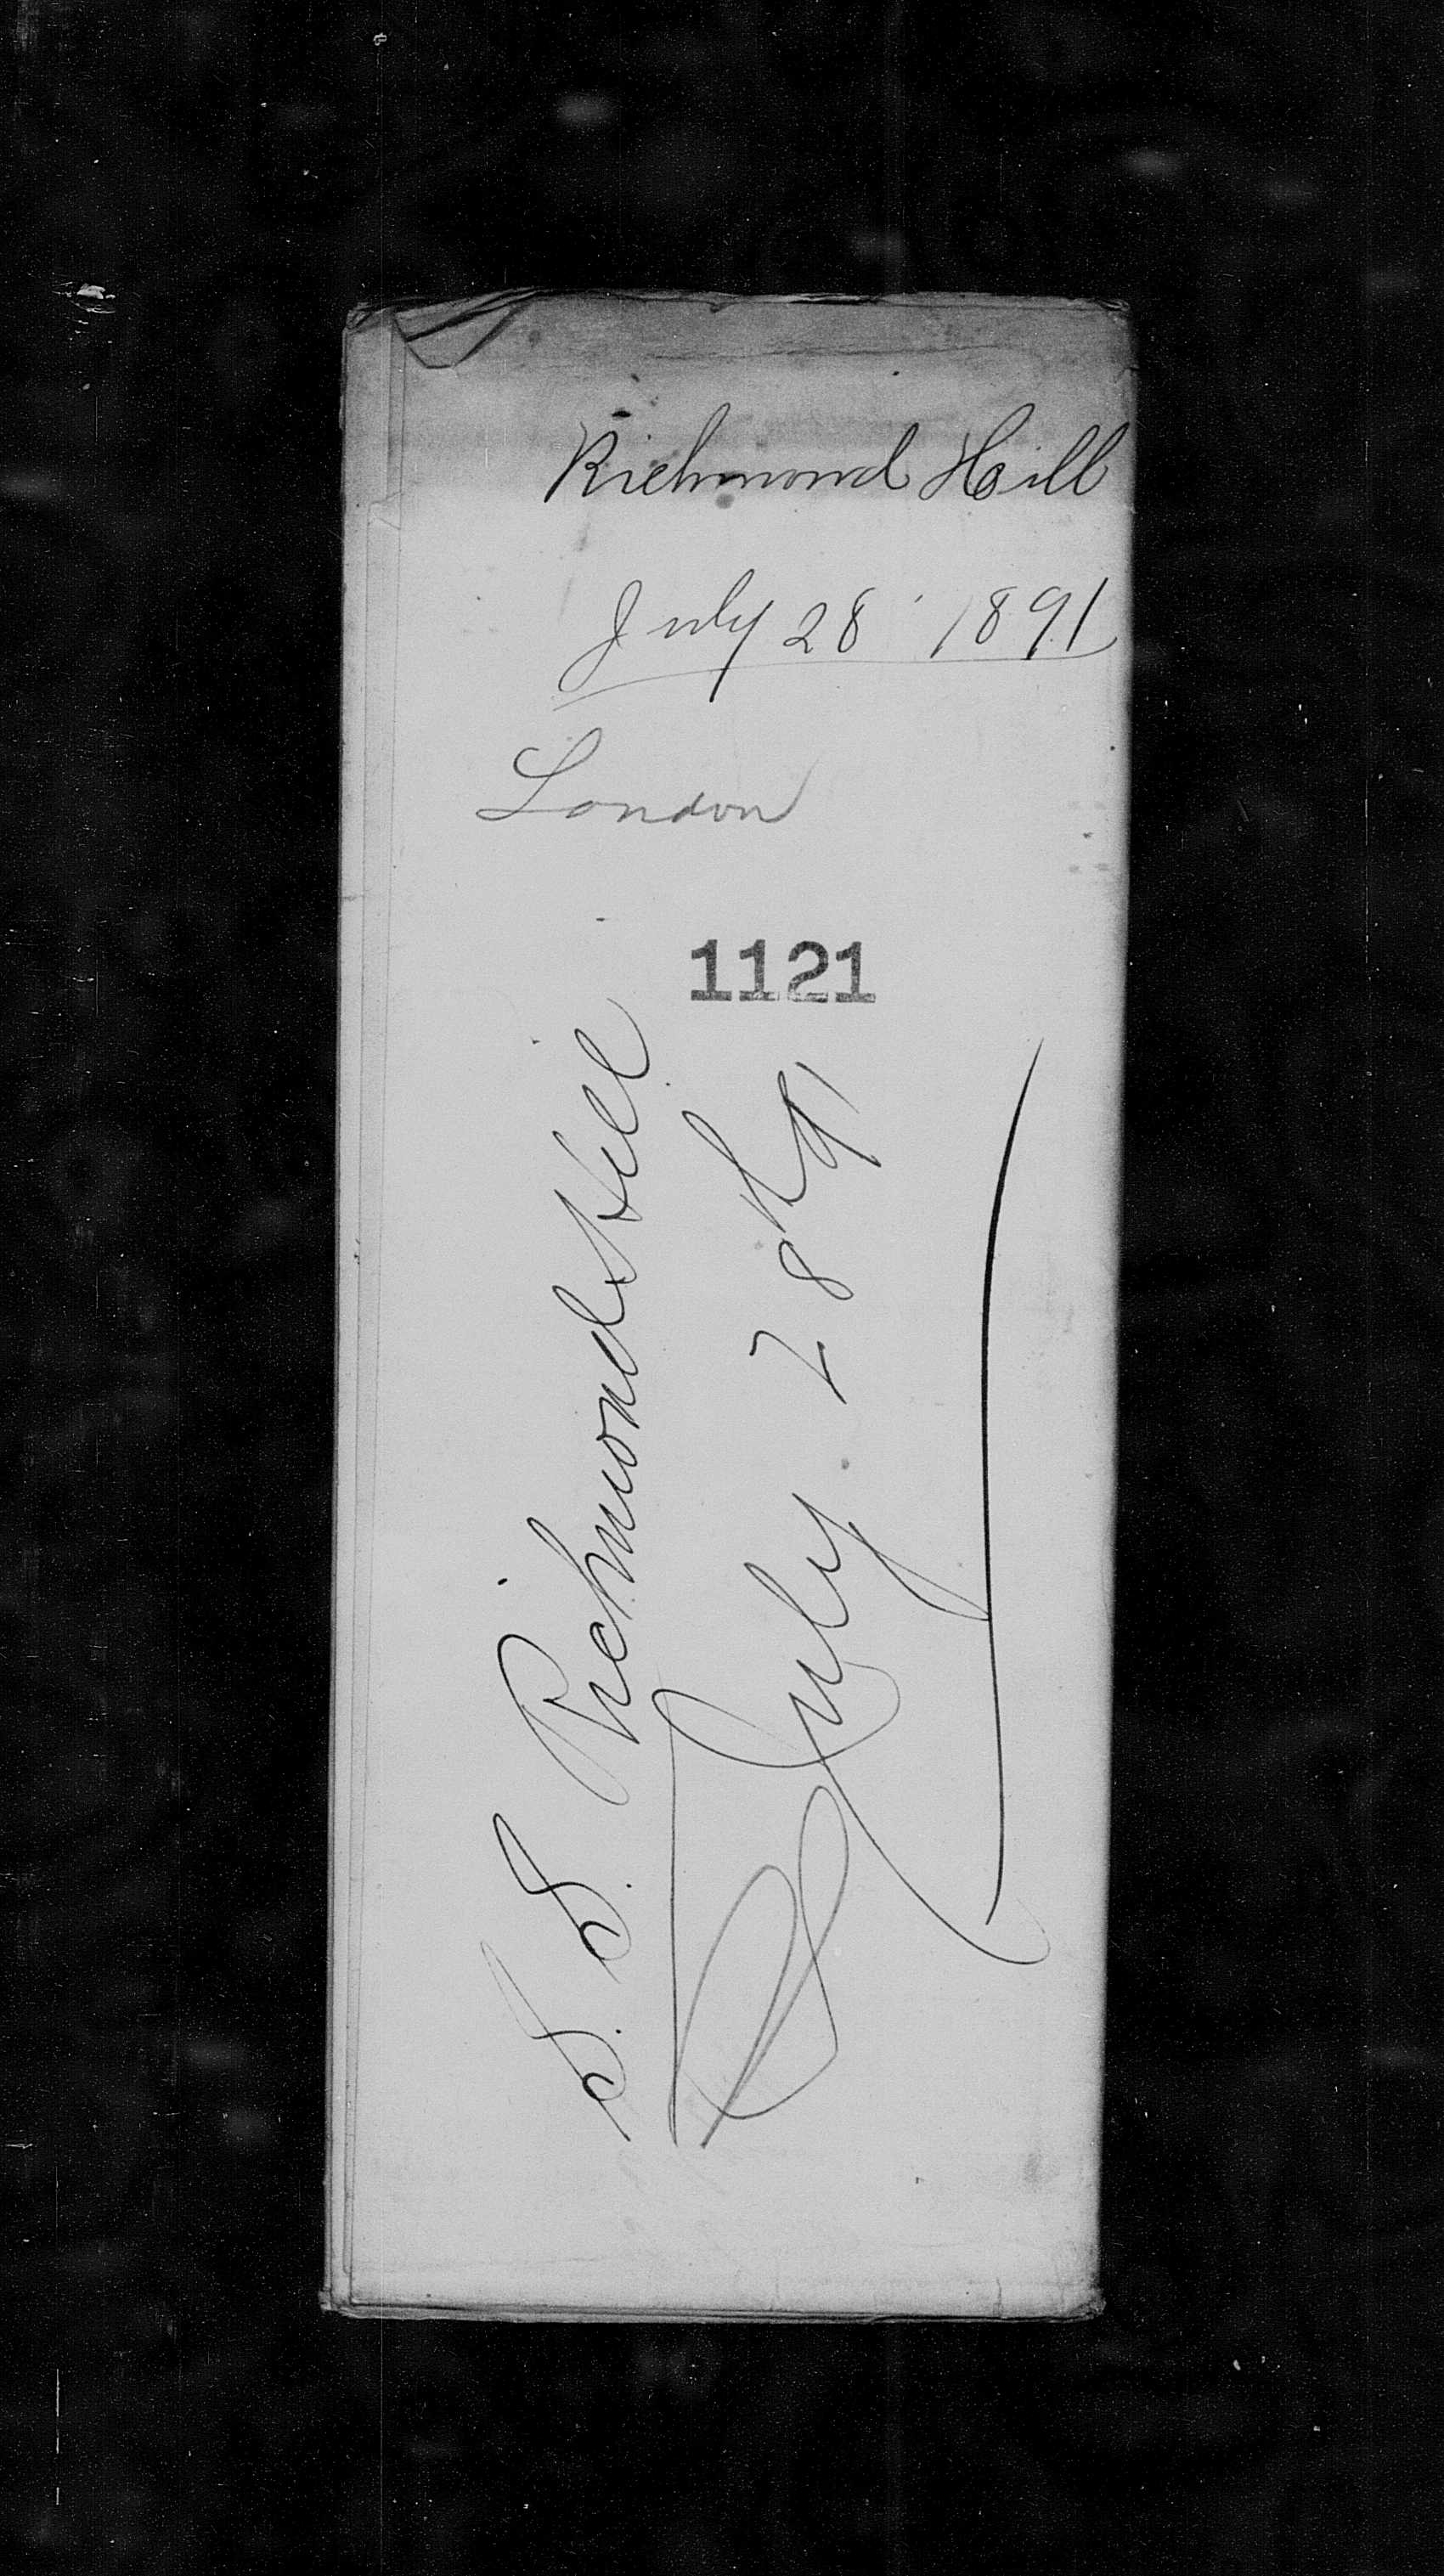 Richmond Hill
July 28 1891
London
1121
S. S. Richmond Hill
July 28/91